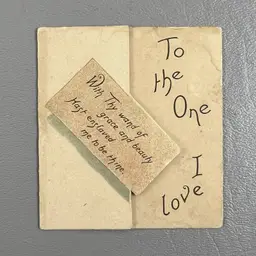 To
the
One
I
love
With Thy wand of
grace and beauty
Hast enslaved
me to be thine.